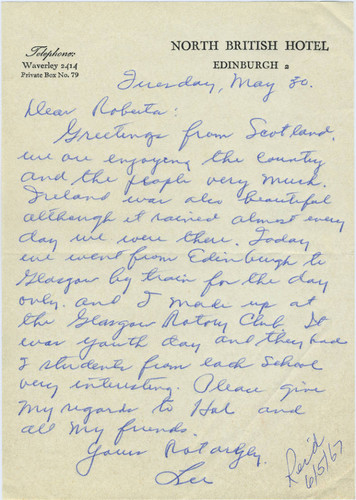 Telephone:
Waverley 2414
Private Box No. 79
NORTH BRITISH HOTEL
EDINBURGH 2
Tuesday, May 30.
Dear Roberta:
Greetings from Scotland.
we are enjoying the country
and the people very much.
Ireland was also beautiful
although it rained almost every
day we were there. Today
we went from Edinburgh to
Glasgow by train for the day
only. and I made up at
the Glasgow Rotary Club. It
was Youth day and they had
students from each School
very interesting. Please give
my regards to Hal and
all My friends
Yours Rotarily.
Lee
Rec'd
6/5/67